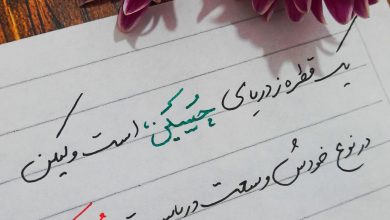 یک قطره ز دریای حُسین است ولیکن
در نوع خودش وسعت دریاست